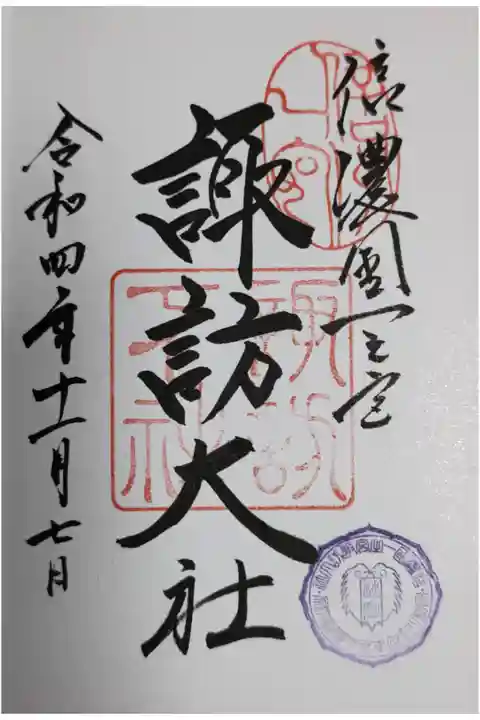 信濃國一之宮
諏訪大社
令和四年十一月七日
諏訪大社